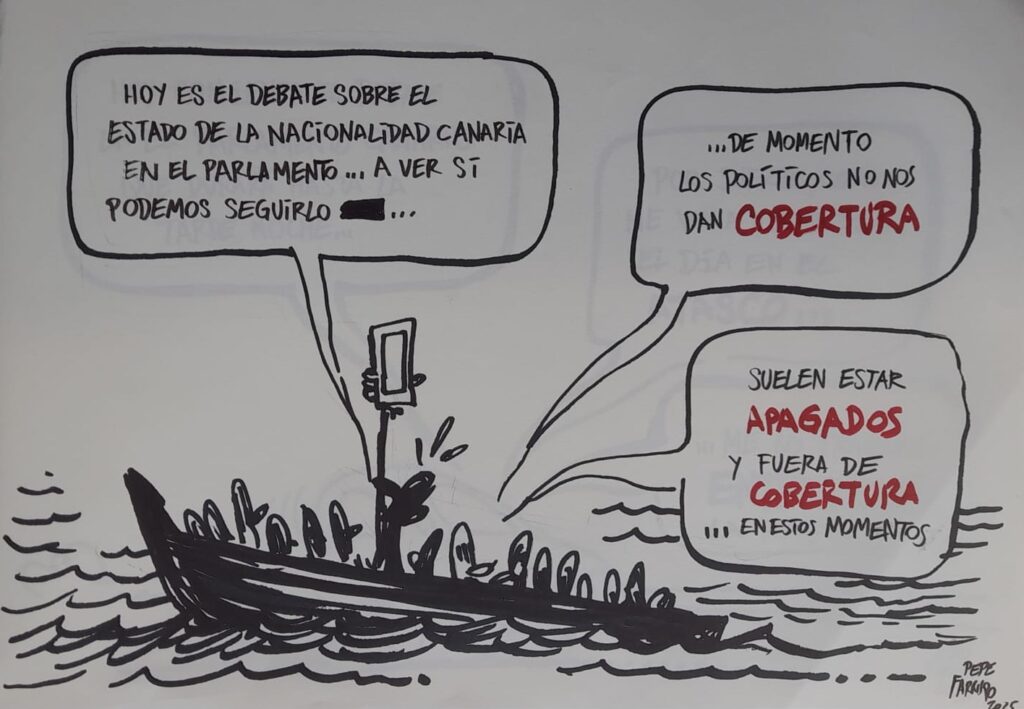 HOY ES EL DEBATE SOBRE EL
ESTADO DE LA NACIONALIDAD CANARIA
EN EL PARLAMENTO... A VER SI
PODEMOS SEGUIRLO ...
...DE MOMENTO
LOS POLÍTICOS NO NOS
DAN COBERTURA
SUELEN ESTAR
APAGADOS
Y FUERA DE
COBERTURA
... EN ESTOS MOMENTOS
PEPE
2025